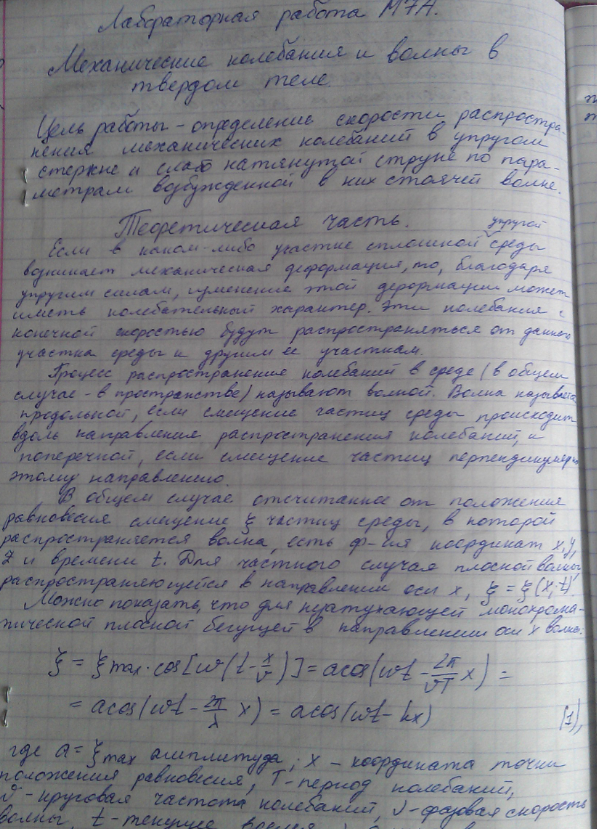 Лабораторная работа М7А.
Механические колебания и волны в
твердом теле
Цель работы - определение скорости распростра-
нения механических колебаний в упругом
стержне и слабо натянутой струне по пара-
метрам возбужденной в них стоячей волне.
Теоретическая часть.
упругой
Если в каком-либо участке сплошной среды
возникает механическая деформация, то, благодаря
упругим силам, изменения этой деформации может
иметь колебательный характер. Эти колебания с
конечной скоростью будут распространяться от данного
участка среды к другим ее участкам.
Процесс распространение колебаний в среде (в общем
случае - в пространстве) называют волной. Волна называется
продольной, если смещение частиц среды происходит
вдоль направления распространения колебаний, и
поперечной, если смещение частиц перпендикулярно
этому направлению.
В общем случае отсчитанное от положения
равновесия смещение ξ частиц среды, в которой
распространяется волна, есть ф-ия координат x, y,
z и времени t. Для частного случая плоской волны,
распространяющейся в направлении оси x, ξ = ξ(x,t).
Можно показать, что для незатухающей монохрома-
тической плоской бегущей в направлении оси x волны:
ξ = ξmax·cos[ω(t-x/v)] = acos(ωt - 2π/vT x) =
= acos(ωt - 2π/λ x) = acos(ωt - kx) (1),
где a = ξmax амплитуда, x - координата точки
положения равновесия, T - период колебаний,
- круговая частота колебаний, υ - фазовая скорость
волны, t - текущее время